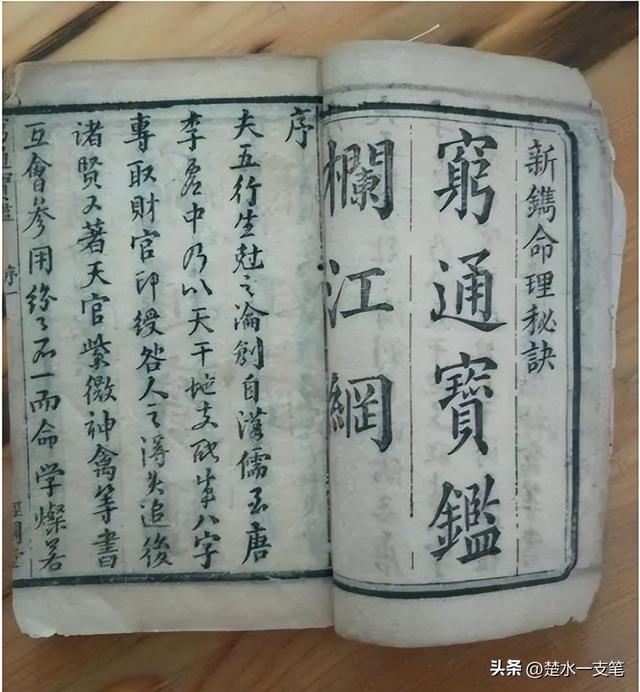 新鐫命理秘訣
窮通寶鑑
欄江網
序
夫五行生尅之論創自漢儒至唐
李虛中乃以天干地支配成八字
專取財官印綬咎人之得失追後
諸賢又著天官紫微神禽等書
互會參用紛々不一而命學燦若
序一
头条 @楚水一支笔